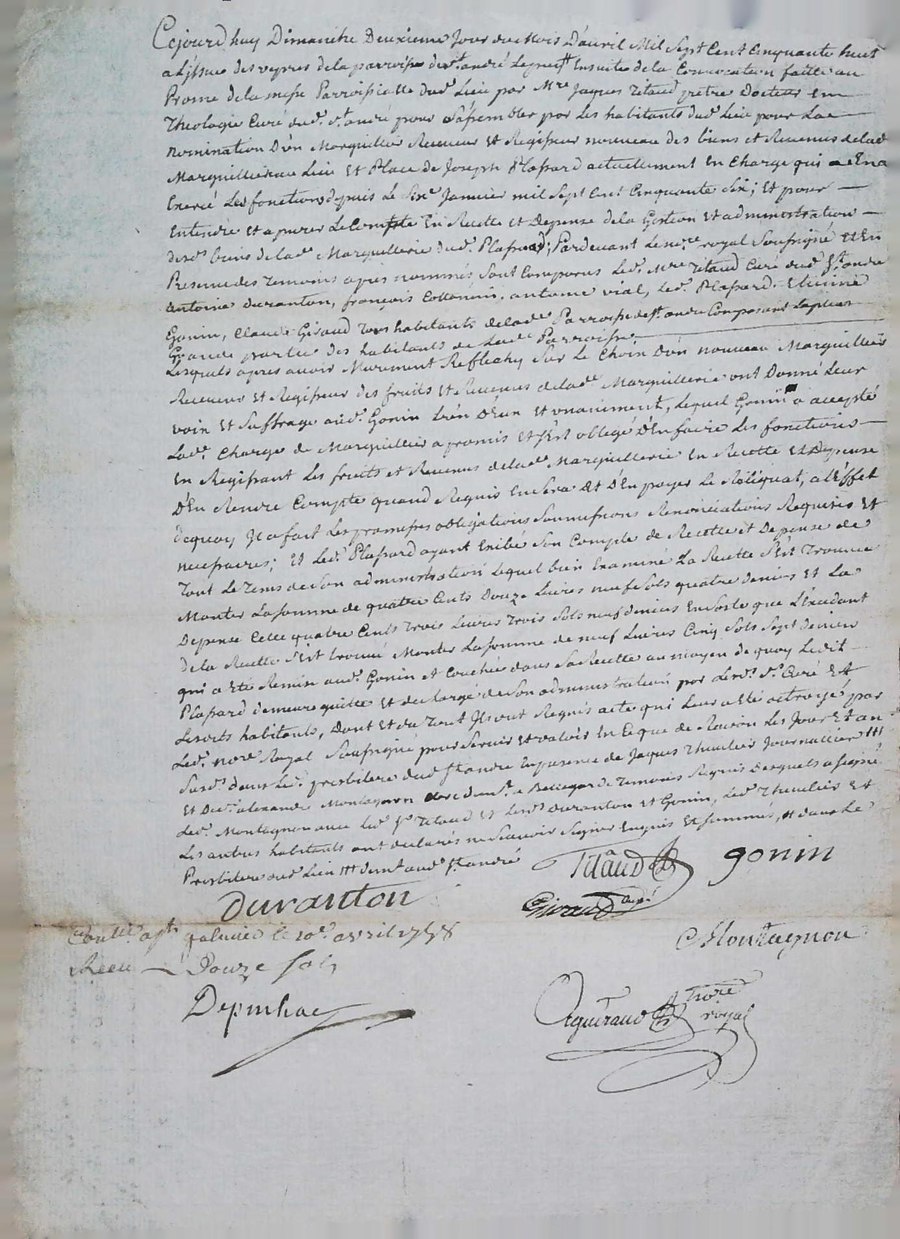 Cejourdhuy Dimanche Deuxieme Jour du Mois Dauril Mil Sept Cent Cinquante huit
a Lissue des vepres de la parroisse de st. andré Le Ensuite de la Convocation faitte au
Prome de la messe Parroissialle dud. Lieu par Mre Jaques Titaud prètre Docteur En
Theologie Curé dud. st. andré pour Sassembler par Les habitants dud. Lieu pour Lae
nomination D'un Marguillier Receueur Et Regisseur nouveau des biens et Reuenus delad
Marguillerie au Lieu Et Place de Joseph Plassard actuellement En Charge qui a
Exercé Les fonctions depuis Le Janvier mil Sept Cent Cinquante Six; Et pour
Entendre Et apurer Le Compte En Recette et Depense de la Gestion Et administration
desd. biens de lade. Marguillerie dud. Plassard, Pardeuant Le nore. royal Soussigné Et En
Presence des Temoins apres nommés Sont Comparus Led. Mre Titaud Curé dud. St. andre
antoine Duranton, françois antoine vial, Led. Plassard. Etienne
Gonin, Claude Giraud Tous habitants delade. Parroisse de st. andre Composant Laplus
Grande partie des habitants de Lade. Parroisse
Lesquels apres auoir Meurement Reflechy Sur Le Choix D'un nouveau Marguillier
Receueur Et Regisseur des fruits Et Reuenus delade. Marguillerie ont Donné Leur
voix et Suffrage aud. Gonin Et unaniment, Lequel Gonin a accepté
Lade. Charge de Marguillier a promis Et s'est obligé D'En faire Les fonctions
En Regissant Les fruits et Reuenus delade. Marguillerie En Recette Et Depense
D'En Rendre Compte quand Requis En Sera Et D'En payer Le Reliquat, a L'Effet
dequoy Il a fait Les promesses obligations Soumissions Renonciations Requises Et
necessaires; Et Led. Plassard ayant Exibé Son Compte de Recette et Depense de
Tout Le Tems de Son administration Lequel bien Examiné La Recette S'Est Trouuée
Monter Lasomme de quatre Cents Douze Liures neuf Sols quatre deniers Et La
Depence Celle quatre Cents Trois Liures Trois Sols neuf deniers Ensorte que L'Excedant
de la Recette S'Est trouué Monter Lasomme de neuf Liures Cinq Sols Sept deniers
qui a Eté Remise aud. Gonin et Couchée dans Sa Recette au moyen de quoy Ledit
Plassard demeure quitte Et decharge de Son administration par Lesd. Sr. Curé Et
Lesdits habitants, Dont et du Tout Ils ont Requis acte qui Leur a Eté octroyé par
Led. nore. Royal Soussigné pour Seruir et valoir En Ce que de Raison Les Jour Et an
Susd. dans Led. presbitere dud. st andre En presence de Jaques Thaulier Journallier
Et De Sr. alexandre Montagnon a Bellegarde Temoins Requis Desquels a Signé
Led. Montagnon auec Led. Sr. Titaud Et Lesd. Duranton et Gonin, Led. Thaulier Et
Les autres habitants ont declarés ne Scauoir Signer Enquis Et Sommés, dans Le
Presbitere dud. Lieu demt. aud. St. andré
Titaud gonin
Duranton Giraud
galmier le 10e. avril 1758
Receu Douze Sols
C Montagnon
Depinhac
Aguiraud nore. royal